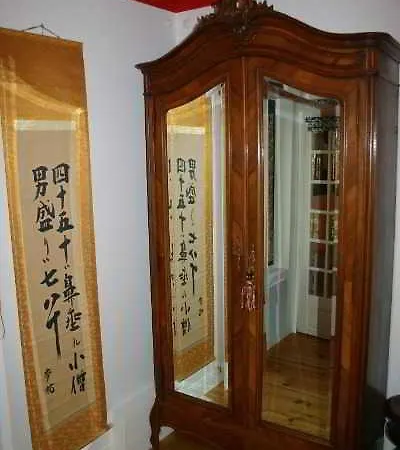 四十五十ハ鼻垂れ小僧
男盛りハ七八十